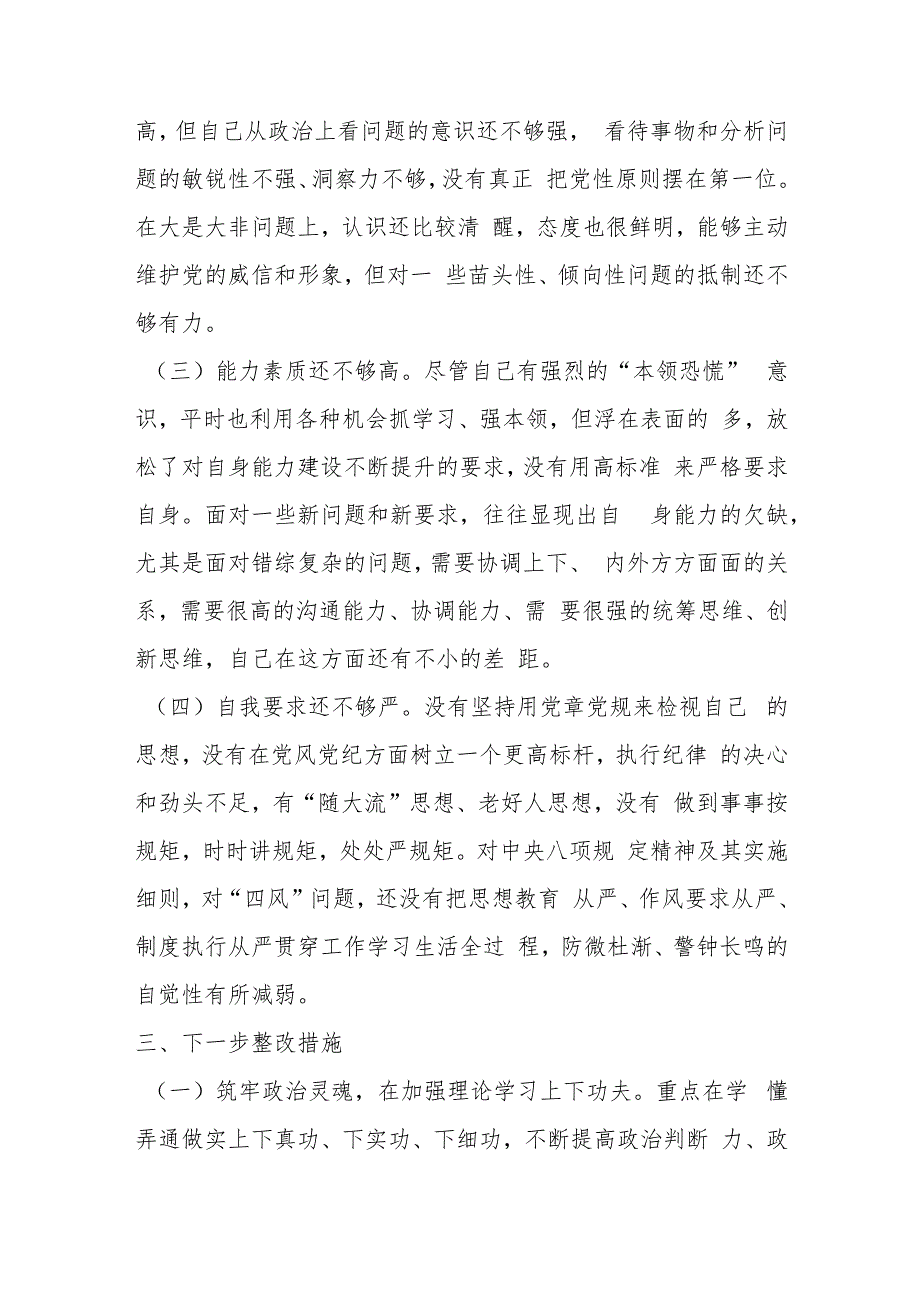 高，但自己从政治上看问题的意识还不够强， 看待事物和分析问
题的敏锐性不强、洞察力不够，没有真正 把党性原则摆在第一位。
在大是大非问题上，认识还比较清 醒，态度也很鲜明，能够主动
维护党的威信和形象，但对一 些苗头性、倾向性问题的抵制还不
够有力。
（三）能力素质还不够高。尽管自己有强烈的“本领恐慌” 意
识，平时也利用各种机会抓学习、强本领，但浮在表面的 多，放
松了对自身能力建设不断提升的要求，没有用高标准 来严格要求
自身。面对一些新问题和新要求，往往显现出自 身能力的欠缺，
尤其是面对错综复杂的问题，需要协调上下、 内外方方面面的关
系，需要很高的沟通能力、协调能力、需 要很强的统筹思维、创
新思维，自己在这方面还有不小的差 距。
（四）自我要求还不够严。没有坚持用党章党规来检视自己 的
思想，没有在党风党纪方面树立一个更高标杆，执行纪律 的决心
和劲头不足，有“随大流”思想、老好人思想，没有 做到事事按
规矩，时时讲规矩，处处严规矩。对中央八项规 定精神及其实施
细则，对“四风”问题，还没有把思想教育 从严、作风要求从严、
制度执行从严贯穿工作学习生活全过 程，防微杜渐、警钟长鸣的
自觉性有所减弱。
三、下一步整改措施
（一）筑牢政治灵魂，在加强理论学习上下功夫。重点在学 懂
弄通做实上下真功、下实功、下细功，不断提高政治判断 力、政